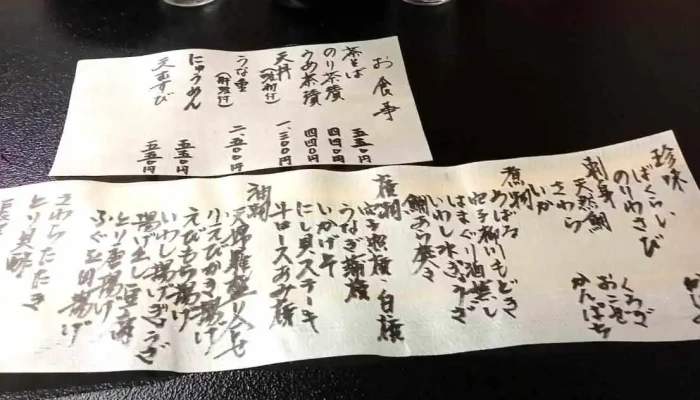 お食事
茶そば 五五〇円
のり茶漬 四四〇円
うめ茶漬 四四〇円
天丼 一、三〇〇円
うな重 二、五〇〇円
(肝吸付)
にゅうめん 五五〇円
天むすび 五五〇円
珍味
ばくらい
のりわさび
刺身
天然鯛
さわら
いか
くろだ
おこぜ
かんぱち
煮物
穴子柳川もどき
はまぐり酒蒸し
いわし水ぎょうざ
鯛あら炊き
穴子照焼・白焼
うなぎ蒲焼
いかげそ
にし貝ステーキ
牛ロースあみ焼
油物
天婦羅盛り合せ
小えびかき揚げ
えびもち揚げ
いわし揚げぎょうざ
揚げ出し豆腐
とり唐揚げ
さわらたたき
とり貝酢